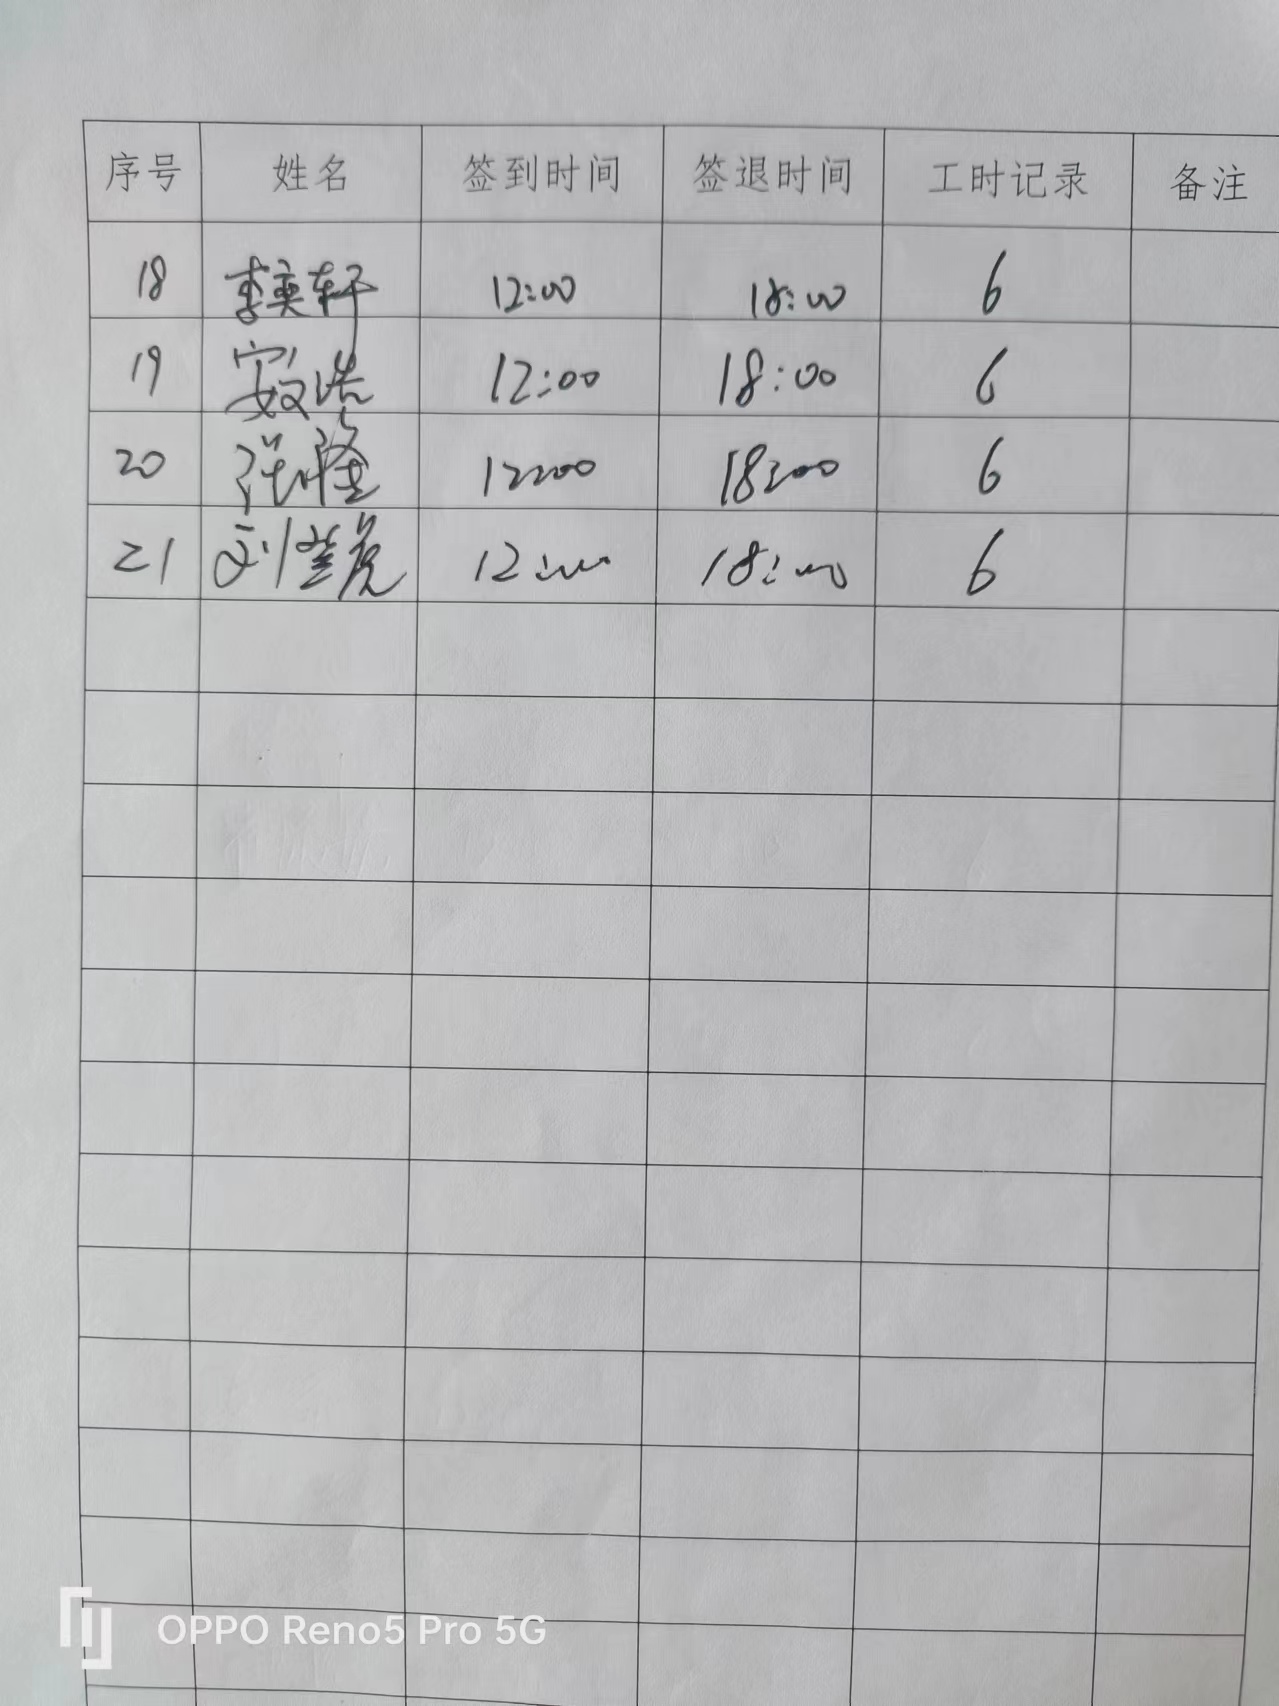 序号 姓名 签到时间 签退时间 工时记录 备注
18 李奕轩 12:00 18:00 6
19 浩 12:00 18:00 6
20 张隆 12:00 18:00 6
21 刘登虎 12:00 18:00 6
OPPO Reno5 Pro 5G